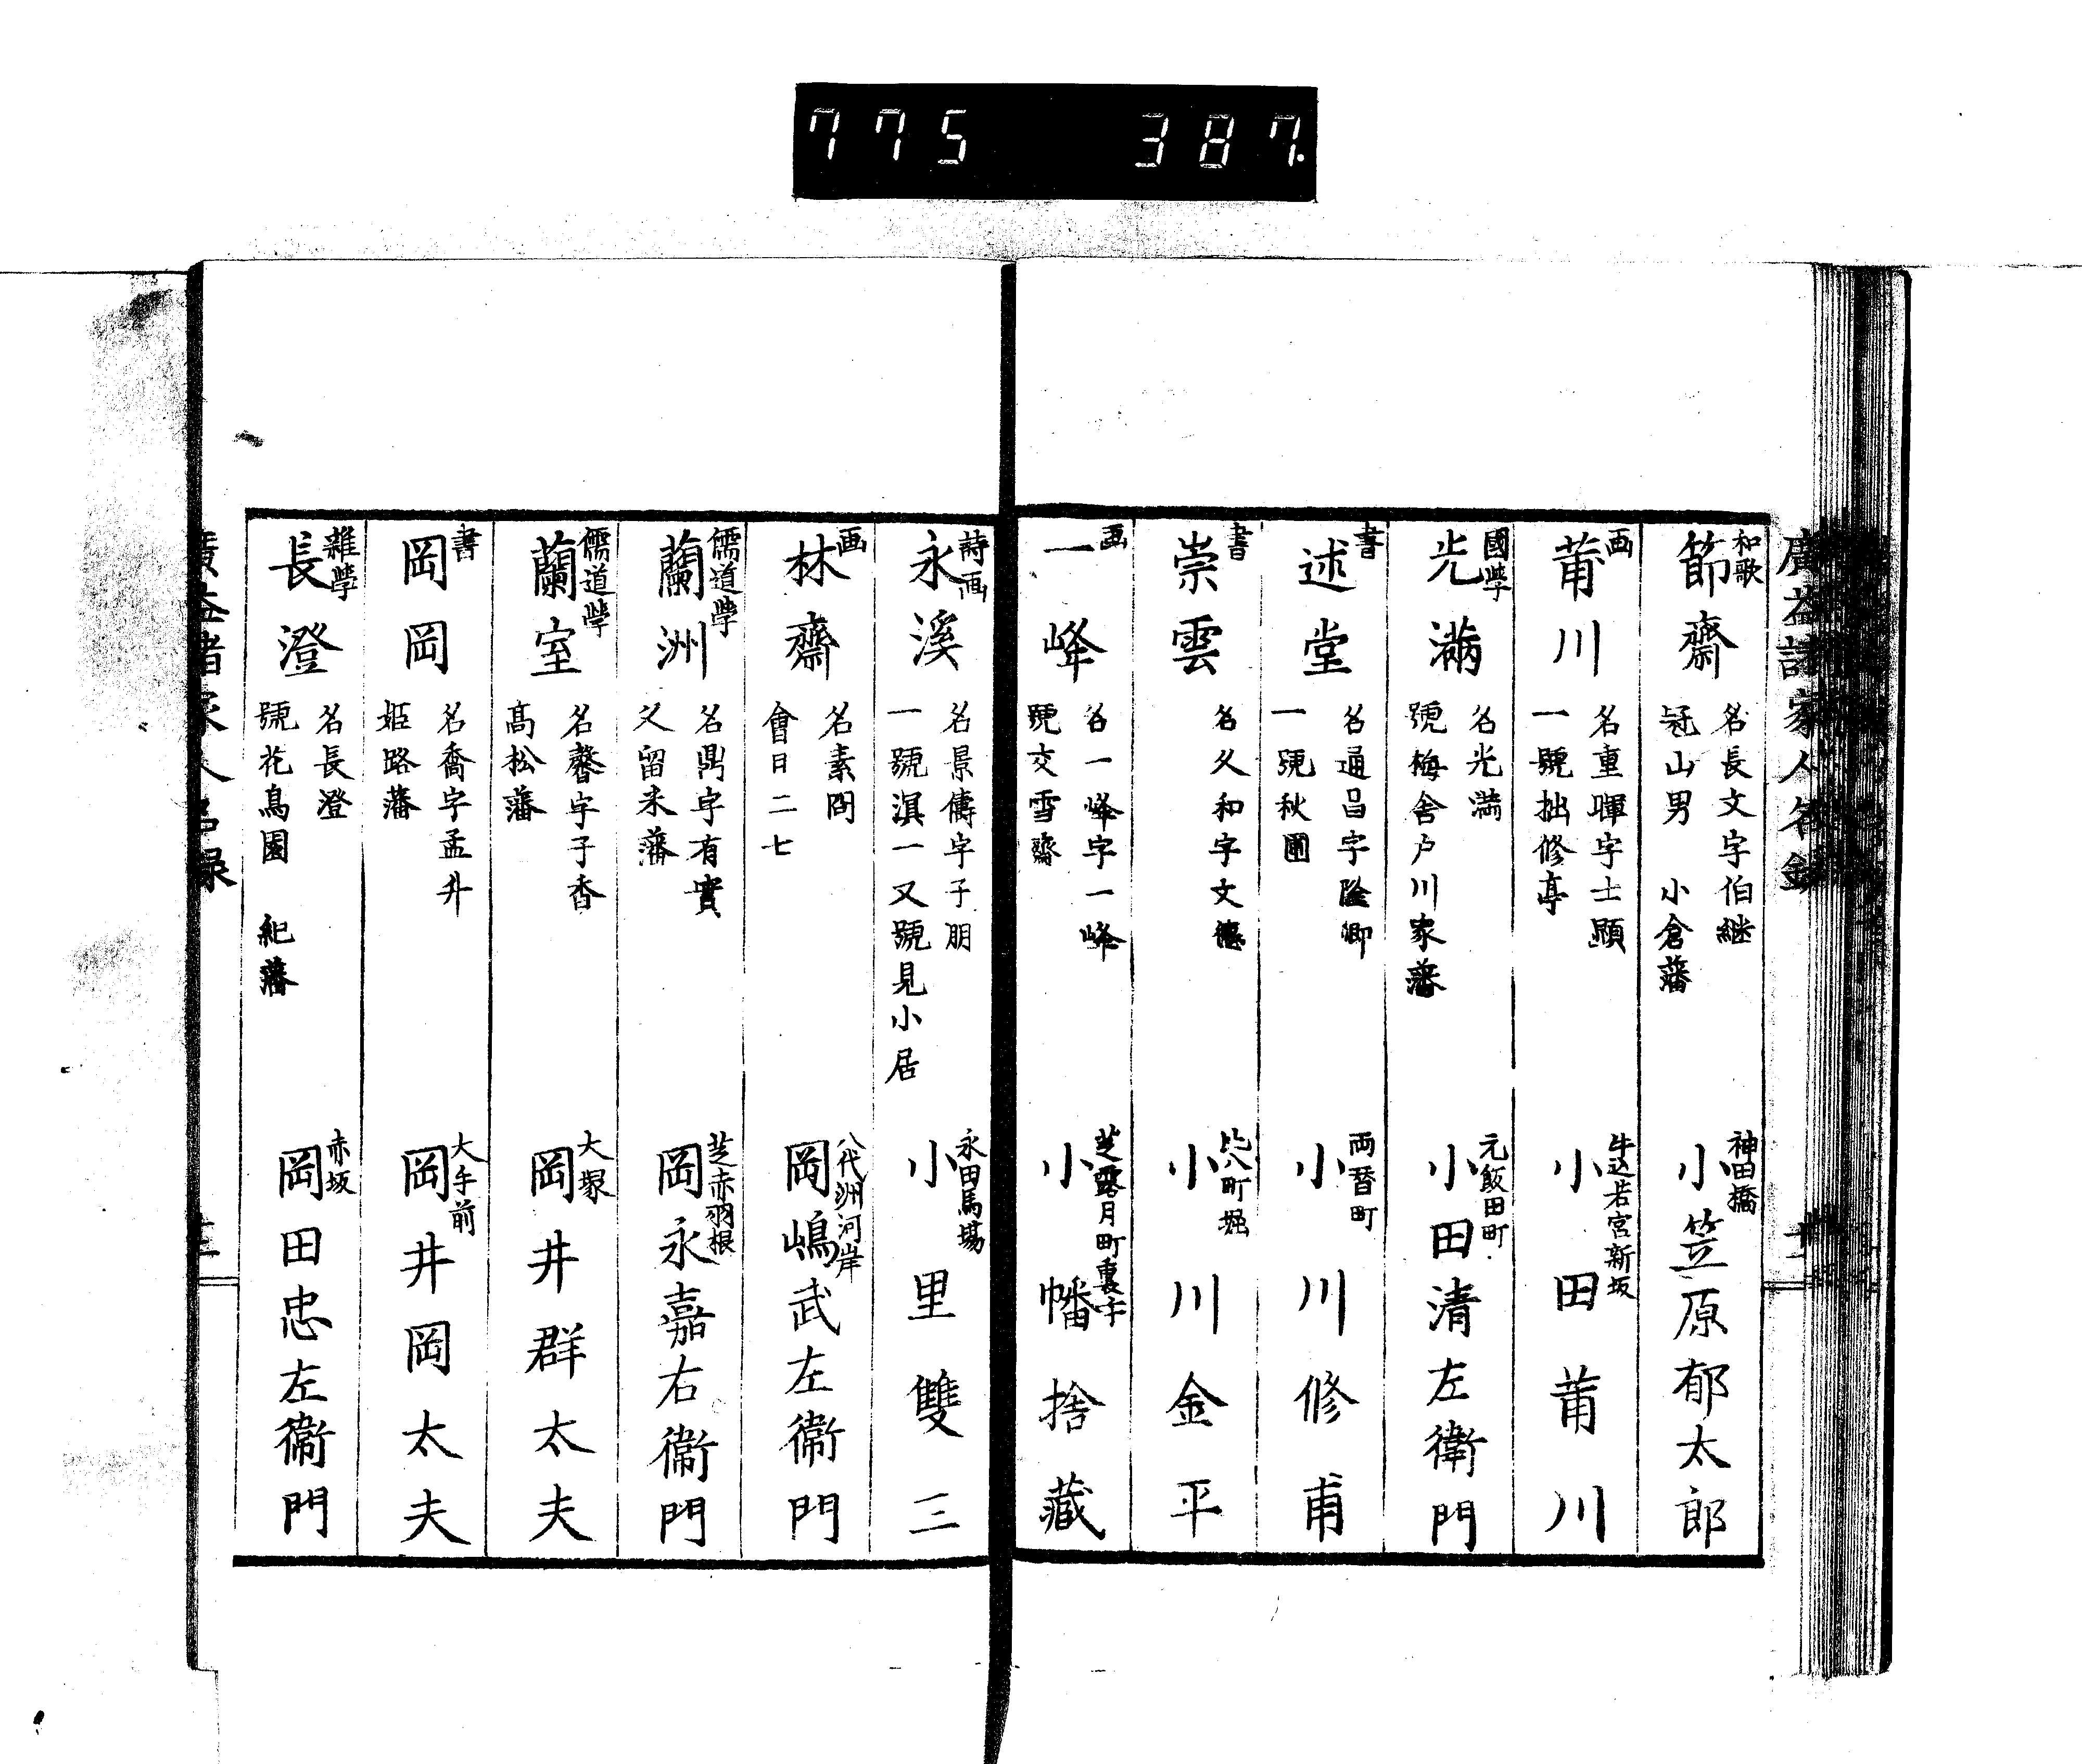 775 387.
廣益諸家人名録
和歌
節齋
名長文字伯継
冠山男 小倉藩
神田橋
小笠原郁太郎
画
莆川
名重暉字士顕
一號拙修亭
牛込若宮新坂
小田莆川
國學
光満
名光満
號梅舎戸川家藩
元飯田町
小田清左衛門
書
述堂
名通昌字隆卿
一號秋圃
両替町
小川修甫
書
崇雲
名久和字文德
八町堀
小川金平
画
一峰
名一峰字一峰
號交雪齋
芝露月町裏手
小幡捨藏
詩画
永溪
名景僑字子朋
一號淇一又號見小居
永田馬場
小里雙三
画
林齋
名素岡
會日二七
八代洲河岸
岡嶋武左衞門
儒道學
蘭洲
名鼎字有實
久留米藩
芝赤羽根
岡永嘉右衞門
儒道學
蘭室
名馨字子香
髙松藩
大塚
岡井群太夫
書
岡岡
名喬字孟升
姫路藩
大手前
岡井岡太夫
雜學
長澄
名長澄
號花鳥園 紀藩
赤坂
岡田忠左衞門
廣益諸家人名録